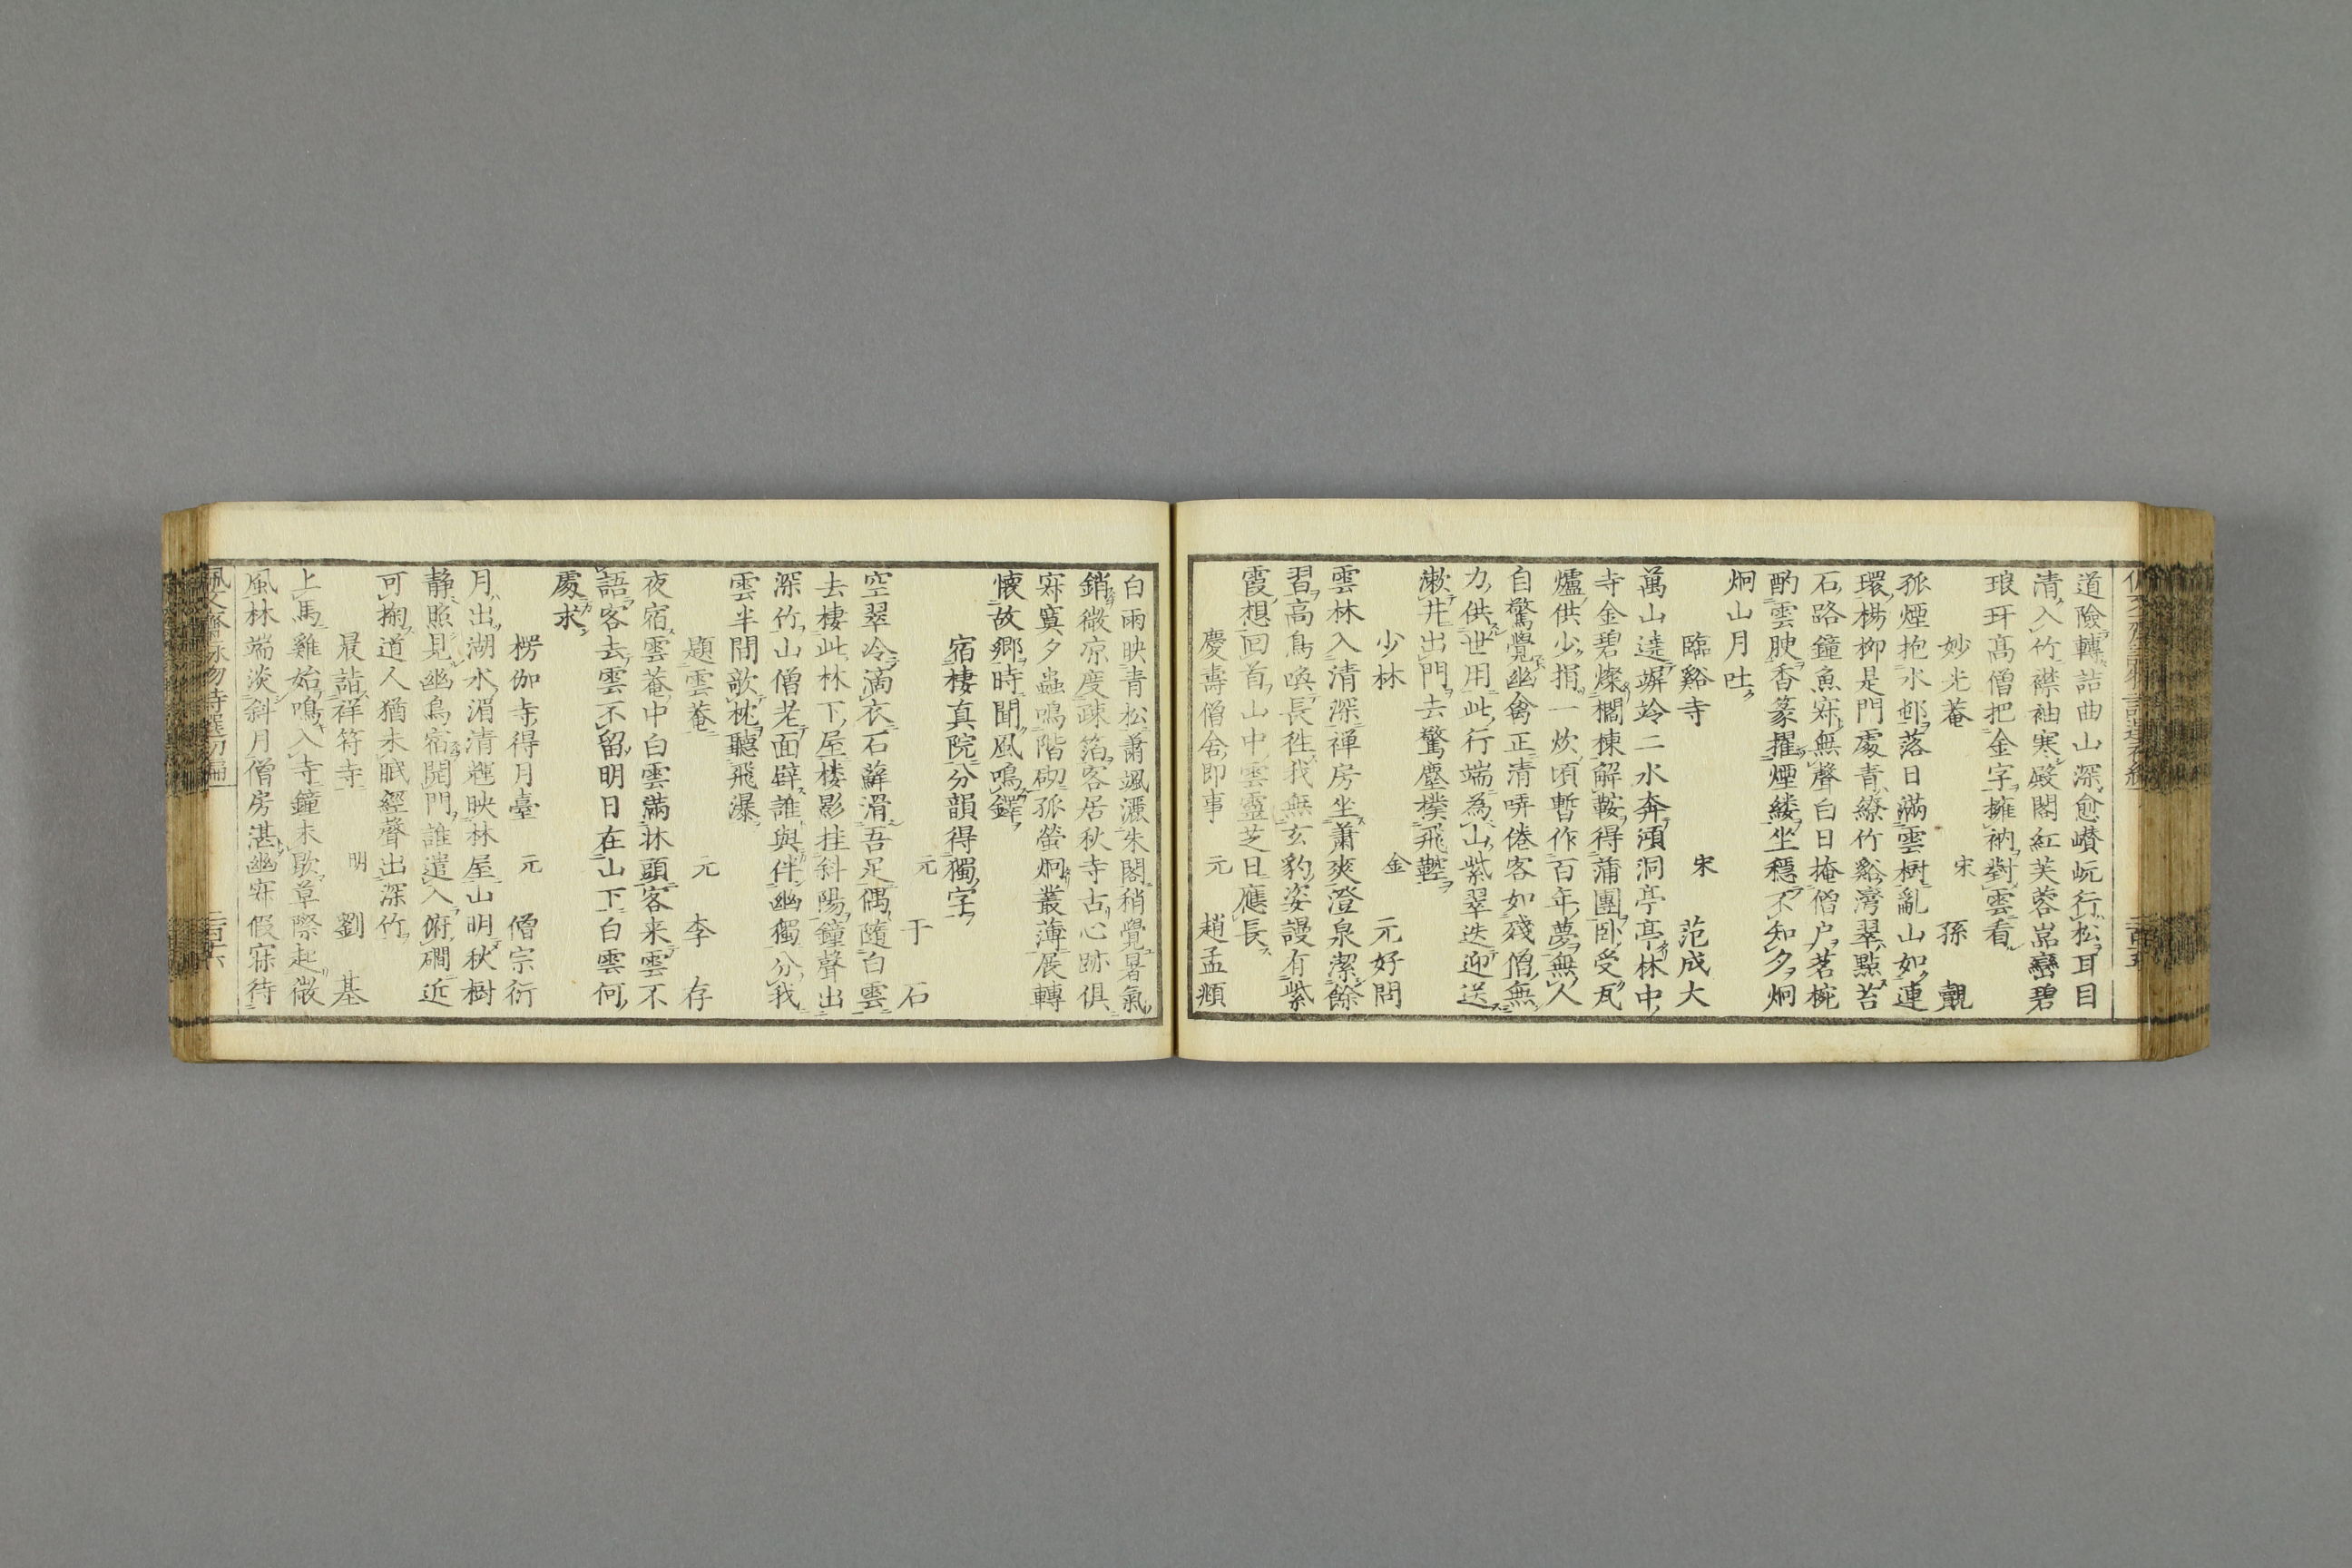 道險轉詰曲山深愈巑岏行松耳目
清入竹襟袖寒殿閣紅芙蓉嵓巒碧
琅玕高僧把金字擁衲對雲看
妙光菴 宋 孫覿
孤煙抱水邨落日滿雲樹亂山如連
環楊柳是門處青繚竹谿灣翠點苔
石路鐘魚寂無聲白日掩僧户茗椀
酌雲腴香篆擢煙縷坐穩不知夕炯
炯山月吐
臨谿寺 宋 范成大
萬山遶竮竛二水奔澒洞亭亭林中
寺金碧燦櫊棟解鞍得蒲團卧受瓦
爐供少捐一炊頃暫作百年夢無人
自驚覺幽禽正清哢倦客如殘僧無
力供世用此行端為山紫翠迭迎送
漱井出門去驚塵撲飛鞚
少林 金 元好問
雲林入清深禪房坐蕭爽澄泉潔餘
習高鳥喚長往我無玄豹姿謾有紫
霞想回首山中雲靈芝日應長
慶壽僧舍即事 元 趙孟頫
白雨映青松蕭颯灑朱閣稍覺暑氣
銷微凉度疎箔客居秋寺古心跡俱
寂寞夕蟲鳴階砌孤螢炯叢薄展轉
懷故鄉時聞風鳴鐸
宿棲真院分韻得獨字
元 于石
空翠冷滴衣石蘚滑吾足偶隨白雲
去棲此林下屋楼影挂斜陽鐘聲出
深竹山僧老面壁誰與伴幽獨分我
雲半間歌枕聽飛瀑
題雲菴 元 李存
夜宿雲菴中白雲滿牀頭客来雲不
語客去雲不留明日在山下白雲何
處求
楞伽寺得月臺 元 僧宗衍
月出湖水滑清輝映林屋山明秋樹
静照見幽鳥宿開門誰遣入俯磵近
可掬道人猶未眠經聲出深竹
晨詣祥符寺 明 劉基
上馬雞始鳴入寺鐘未歇草際起微
風林端淡斜月僧房湛幽寂假寐待
佩文齋詠物詩選初編 二百六